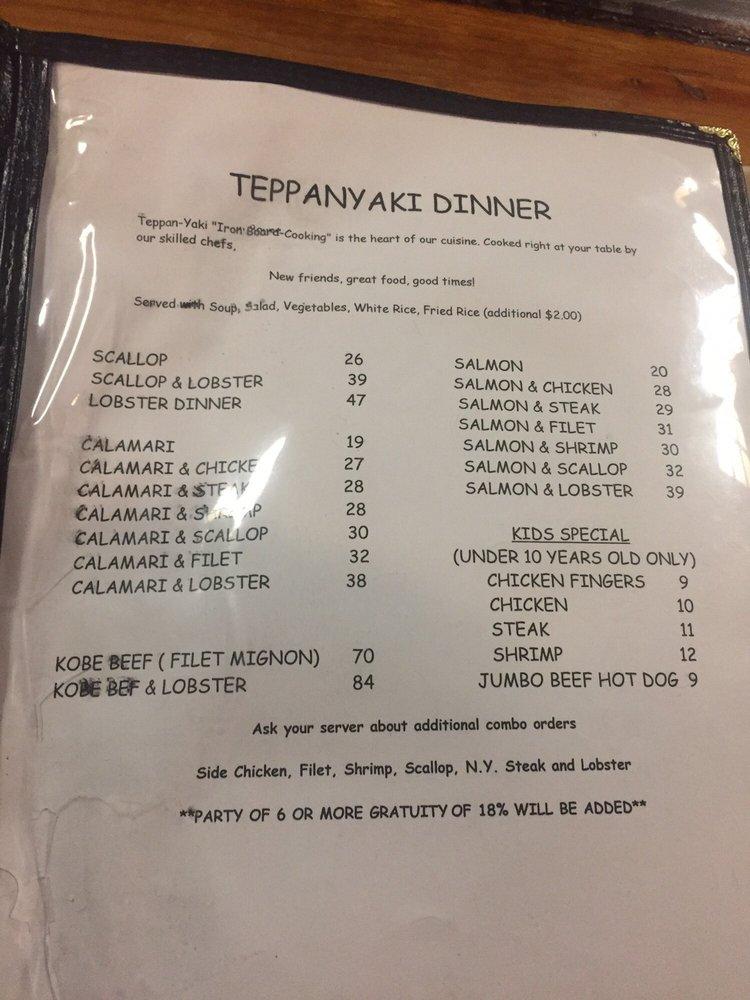 TEPPANYAKI DINNER
Teppan-Yaki "Iron Board-Cooking" is the heart of our cuisine. Cooked right at your table by
our skilled chefs,
New friends, great food, good times!
Served with Soup, Salad, Vegetables, White Rice, Fried Rice (additional $2.00)
SCALLOP 26
SCALLOP & LOBSTER 39
LOBSTER DINNER 47
CALAMARI 19
CALAMARI & CHICKEN 27
CALAMARI & STEAK 28
CALAMARI & SHRIMP 28
CALAMARI & SCALLOP 30
CALAMARI & FILET 32
CALAMARI & LOBSTER 38
KOBE BEEF ( FILET MIGNON) 70
KOBE BEF & LOBSTER 84
SALMON 20
SALMON & CHICKEN 28
SALMON & STEAK 29
SALMON & FILET 31
SALMON & SHRIMP 30
SALMON & SCALLOP 32
SALMON & LOBSTER 39
KIDS SPECIAL
(UNDER 10 YEARS OLD ONLY)
CHICKEN FINGERS 9
CHICKEN 10
STEAK 11
SHRIMP 12
JUMBO BEEF HOT DOG 9
Ask your server about additional combo orders
Side Chicken, Filet, Shrimp, Scallop, N.Y. Steak and Lobster
**PARTY OF 6 OR MORE GRATUITY OF 18% WILL BE ADDED**